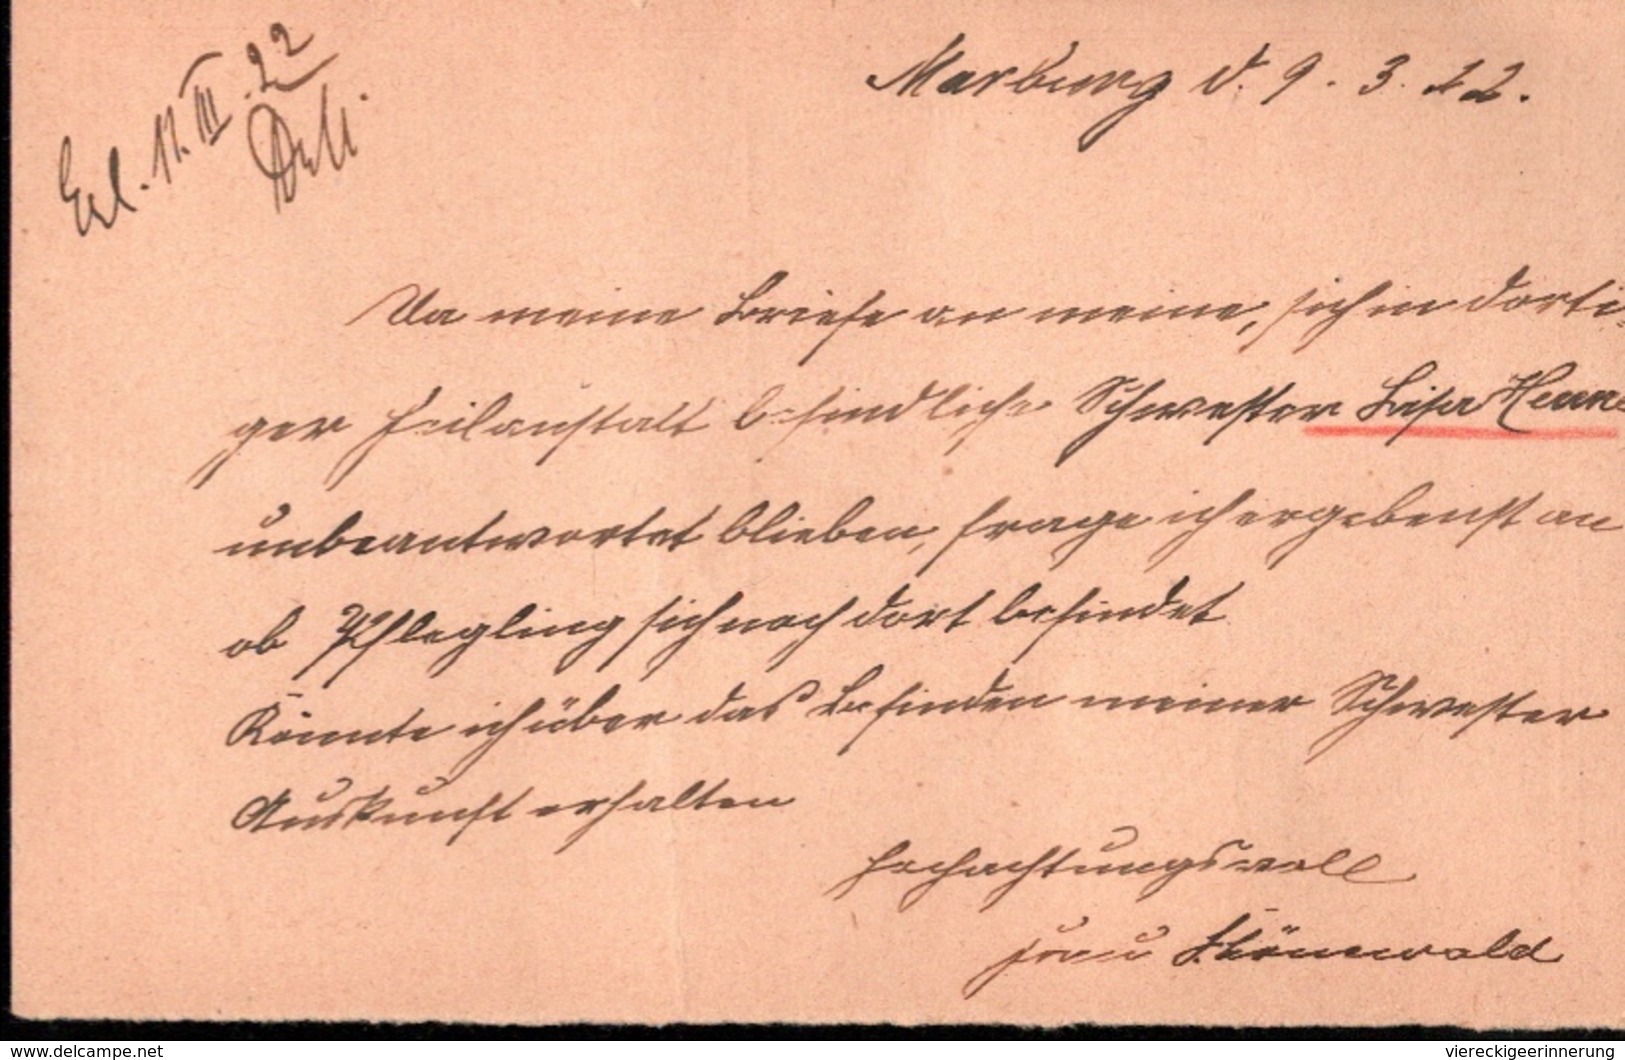 Erl. 11. III. 22
Marburg d. 9. 3. 22.
Da meine Briefe an meine, sich in dorti-
ger Heilanstalt befindliche Schwester Lisa
unbeantwortet blieben, frage ich ergebenst an
ob Pflegling sich noch dort befindet
Könnte ich über das Befinden meiner Schwester
Auskunft erhalten
Hochachtungsvoll
Frau
delcampe.net
viereckigeerinnerung